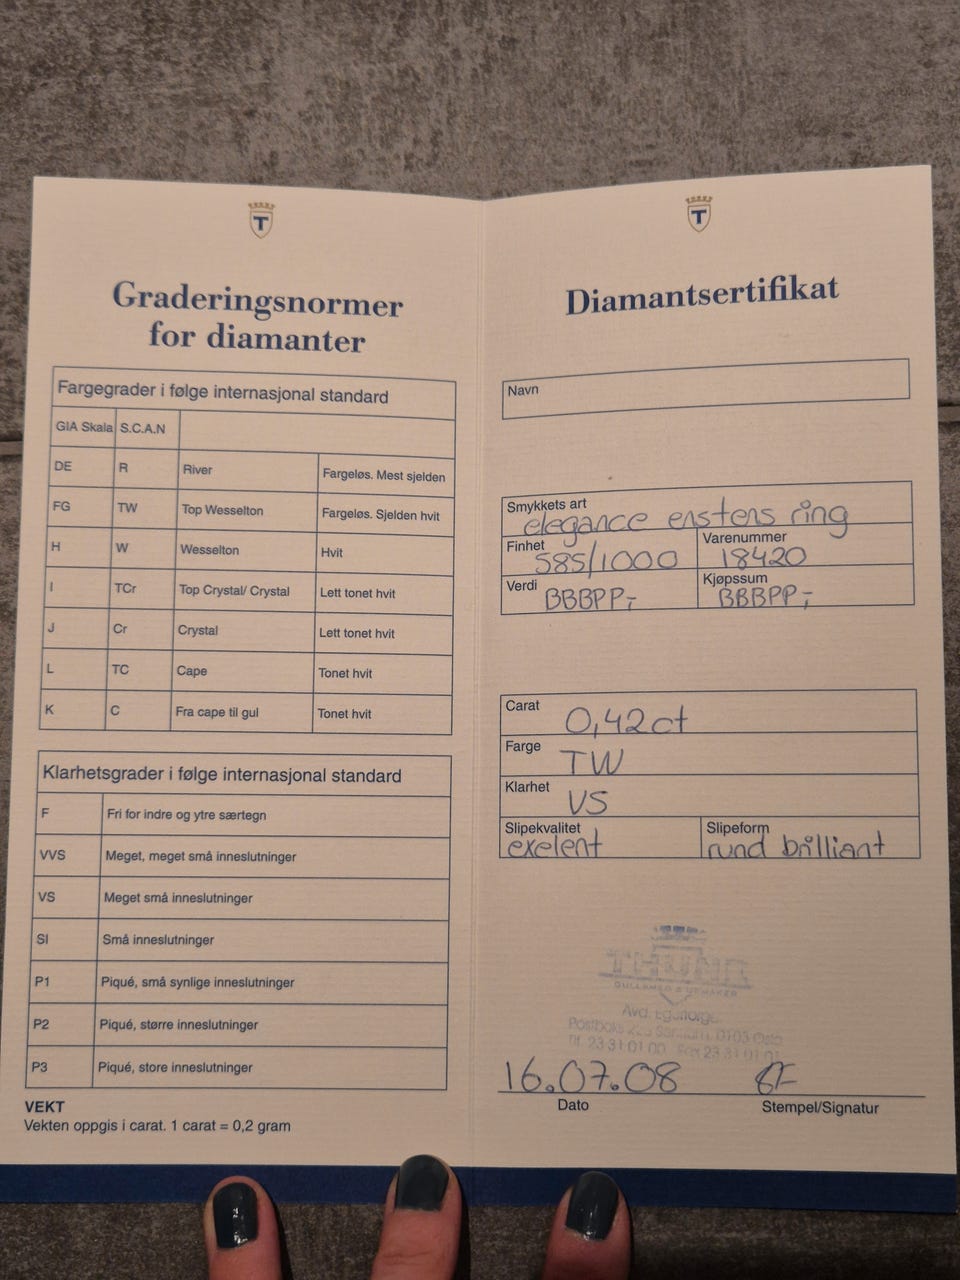 T
Graderingsnormer
for diamanter
Fargegrader i følge internasjonal standard
GIA Skala S.C.A.N
DE R River Fargeløs. Mest sjelden
FG TW Top Wesselton Fargeløs. Sjelden hvit
H W Wesselton Hvit
I TCr Top Crystal/ Crystal Lett tonet hvit
J Cr Crystal Lett tonet hvit
L TC Cape Tonet hvit
K C Fra cape til gul Tonet hvit
Klarhetsgrader i følge internasjonal standard
F Fri for indre og ytre særtegn
VVS Meget, meget små inneslutninger
VS Meget små inneslutninger
SI Små inneslutninger
P1 Piqué, små synlige inneslutninger
P2 Piqué, større inneslutninger
P3 Piqué, store inneslutninger
VEKT
Vekten oppgis i carat. 1 carat = 0,2 gram
T
Diamantsertifikat
Navn
Smykkets art
elegance enstens ring
Finhet Varenummer
585/1000 18420
Verdi Kjøpssum
BBBPP,- BBBPP,-
Carat
0,42ct
Farge
TW
Klarhet
VS
Slipekvalitet Slipeform
exelent rund brilliant
Avd.
Postboks 0103 Oslo
Tlf. 23 31 01 00 Fax 23 31 01 01
16.07.08
Dato Stempel/Signatur